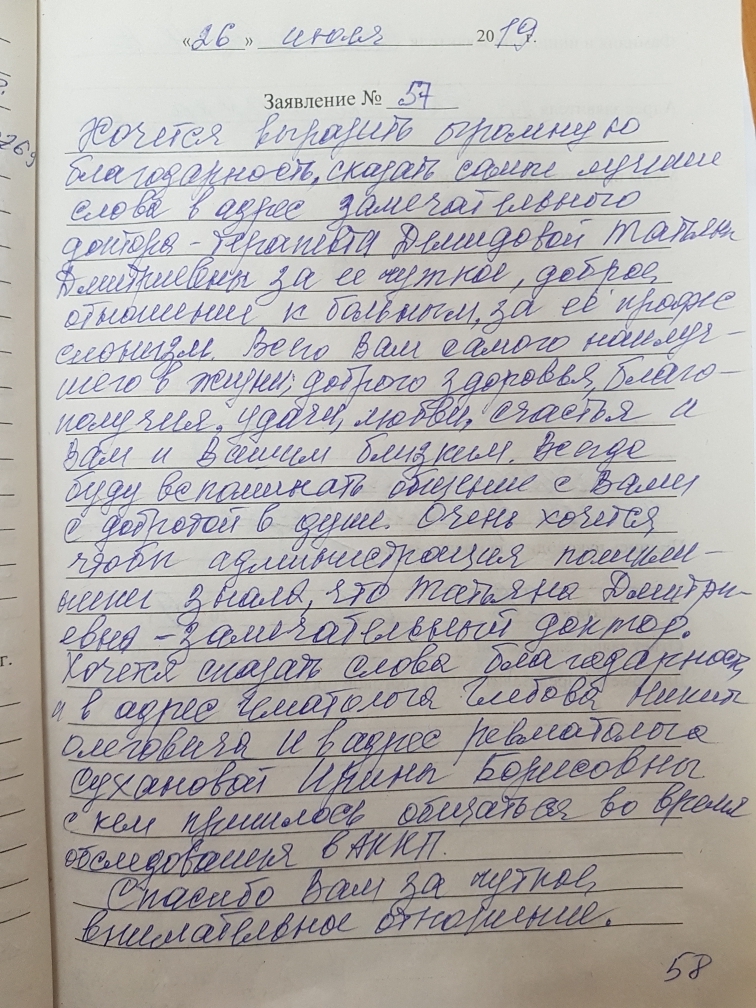 «26» июля 2019г.
Заявление № 57
Хочется выразить огромную
благодарность, сказать самые лучшие
слова в адрес замечательного
доктора - терапевта Демидовой Татьяны
Дмитриевны за ее чуткое, доброе
отношение к больным, за её профес
сионизм. Всего Вам самого наилуч-
шего в жизни, доброго здоровья, благо-
получия, удачи, любви, счастья и
Вам и Вашим близким. Всегда
буду вспоминать общение с Вами
с добротой в душе. Очень хочется
чтобы администрация поликли-
ники знала, что Татьяна Дмитри-
евна - замечательный доктор.
Хочется сказать слова благодарност
и в адрес гематолога Глебова Никит
Олеговича и в адрес ревматолога
Сухановой Ирины Борисовны
с кем пришлось общаться во время
обследования в АККП.
Спасибо Вам за чуткое,
внимательное отношение.
58